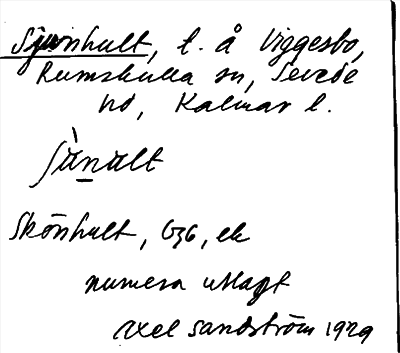 Sjunhult, l. å Viggesbo,
Rumskulla sn, Sevede
hd, Kalmar l.
sùnult
Skönhult, G36, ek
numera utlagt
Axel Sandström 1929